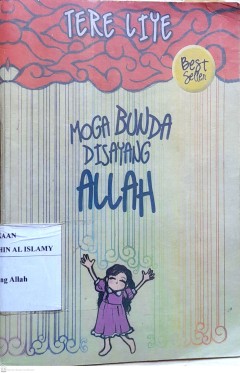 TERE LIYE
Best
Seller
MOGA BUNDA
DISAYANG
ALLAH
AAN
HIN AL ISLAMY
ng Allah